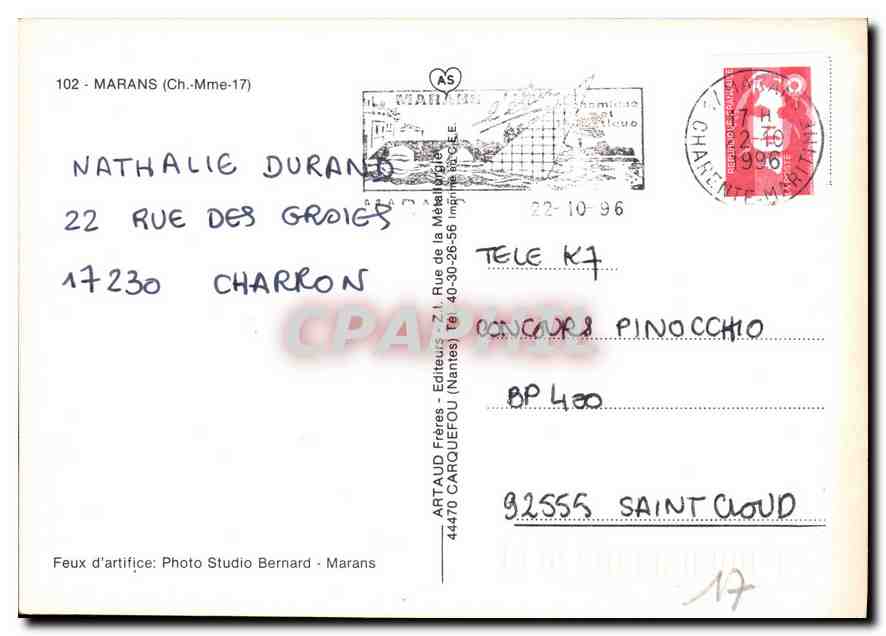 102 - MARANS (Ch.-Mme-17)
AS
MARANS
22-10-96
MARANS
7 H
2-10
1996
CHARENTE-MARITIME
NATHALIE DURAND
22 RUE DES GROIES
17230 CHARRON
ARTAUD Frères - Editeurs - Z.I. Rue de la Métallurgie
44470 CARQUEFOU (Nantes) Tél. 40-30-26-56 Imprimé en C.E.E.
TELE K7
CONCOURS PINOCCHIO
BP 400
92555 SAINT CLOUD
CPAPHIL
Feux d'artifice: Photo Studio Bernard - Marans
17